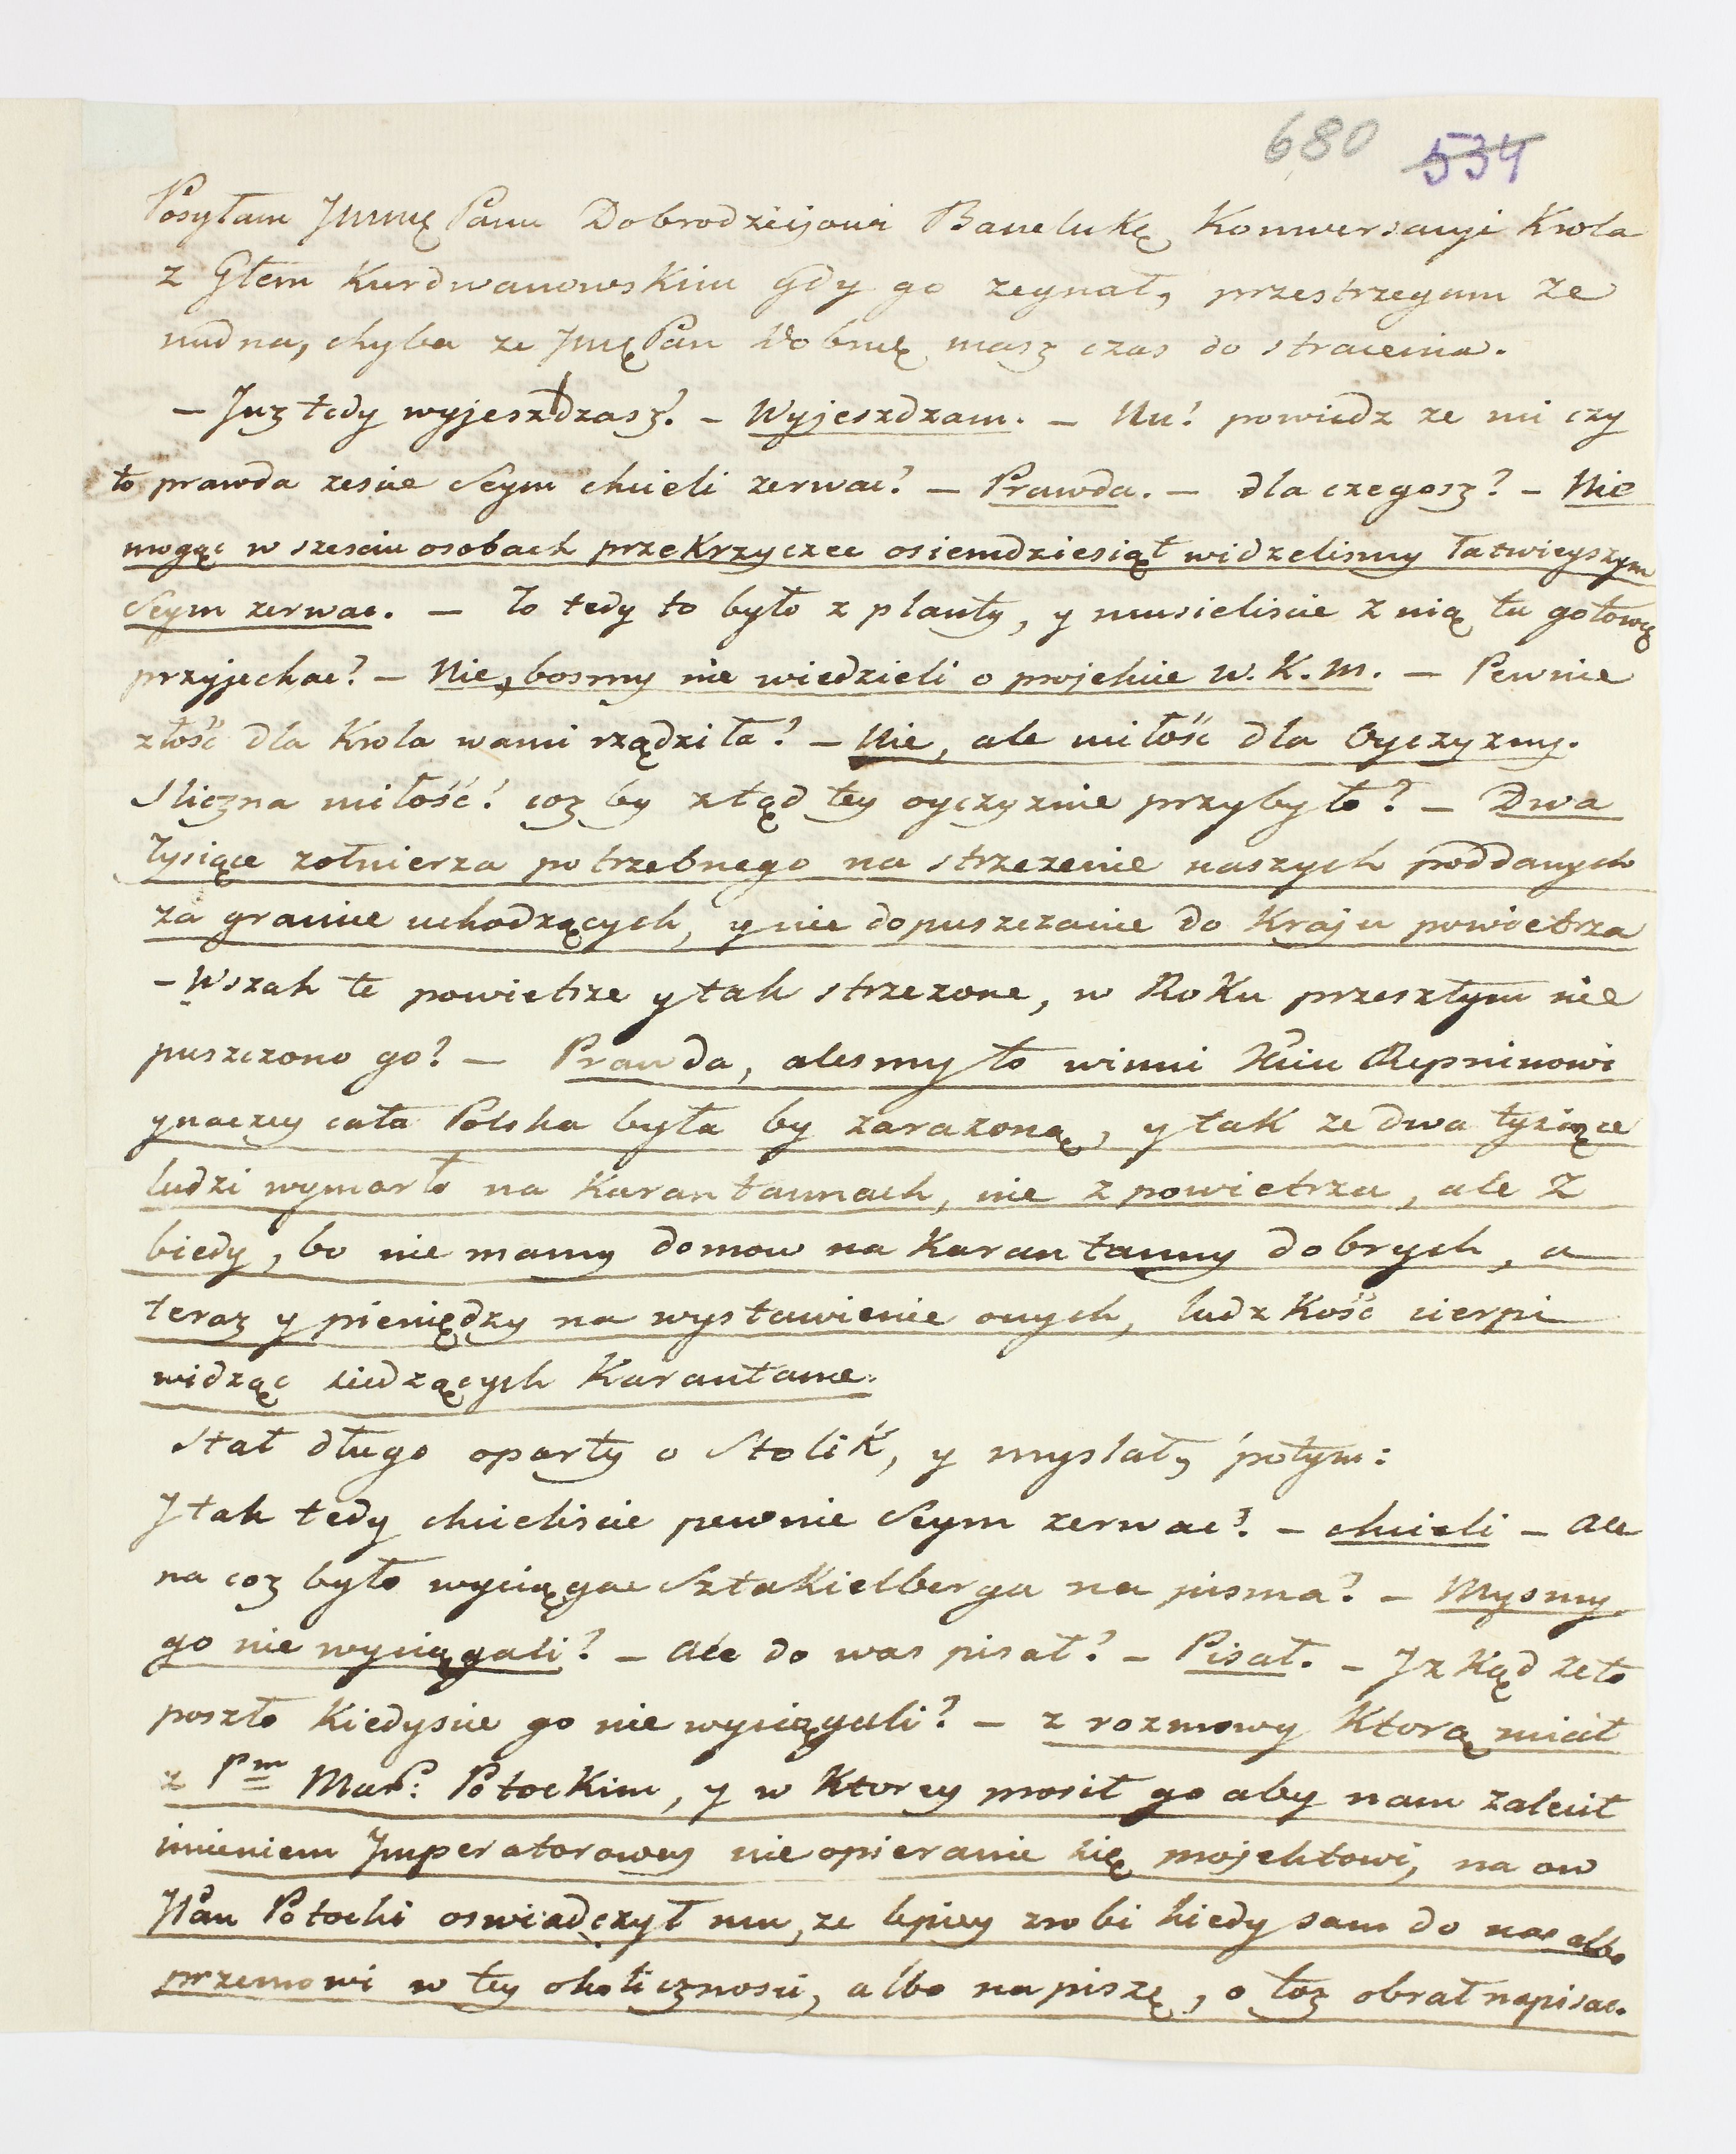 680 534
Posyłam Jmmę Panu Dobrodzieiowi Banelukę Konwersacyi Krola
z Głem Kurdwanowskim gdy go zegnał, przestrzegam ze
nudna, chyba ze JmęPan Dobrię masz czas do stracenia.
– Juz tedy wyjeszdzasz? – Wyjeszdzam. – Nu! powiedz ze mi czy
to prawda zescie Seym chcieli zerwac? – Prawda. – dla czegosz? – Nie
mogąc w szesciu osobach przekrzyczec osiemdziesiąt widzelismy łatwieyszym
Seym zerwac. – To tedy to było z planty, y musieliscie z nią tu gotową
przyjechac? – Nie, bosmy nie wiedzieli o projekcie W. K. M. – Pewnie
złość dla Krola wami rządziła? – Nie, ale miłość dla Oyczyzny.
Sliczna miłość! coz by ztąd tey oyczyznie przybyło? – Dwa
tysiące zołnierza potrzebnego na strzezenie naszych poddanych
za granice uchodzących, y nie dopuszczanie do Kraju powietrza
– Wszak te powietrze y tak strzezone, w Roku przeszłym nie
puszczono go? – Prawda, alesmy to winni Xciu Repninowi
ynaczey cała Polska była by zarazoną, y tak ze dwa tysiące
ludzi wymarło na Karantannach, nie z powietrza, ale z
biedy, bo nie mamy domow na Karantanny dobrych, a
teraz y pieniędzy na wystawienie onych, ludzkość cierpi
widząc siedzących Karantane.
Stał długo oparty o Stolik, y myslał, potym:
Y tak tedy chcieliscie pewnie Seym zerwac? – chcieli – Ale
na coz było wyciągac Sztakielberga na pisma? – Mysmy
go nie wyciągali? – Ale do was pisał? – Pisał. – Y zkąd ze to
poszło kiedyscie go nie wyciągali? – z rozmowy ktorą miał
z Pm Mar: Potockim, y w ktorey prosił go aby nam zalecił
imieniem Jmperatorowey nie opieranie się projektowi, na ow
JPan Potocki oswiadczył mu, ze lepiey zrobi kiedy sam do nas albo
przemowi w tey okolicznosci, albo napiszę, o toz obrał napisac.